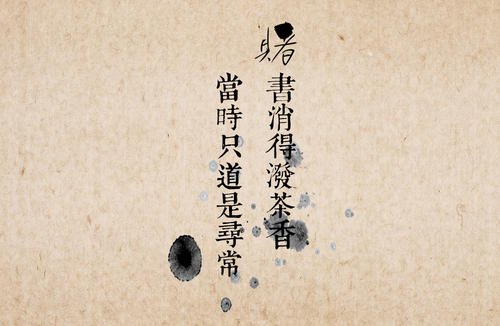 賭書消得潑茶香
當時只道是尋常